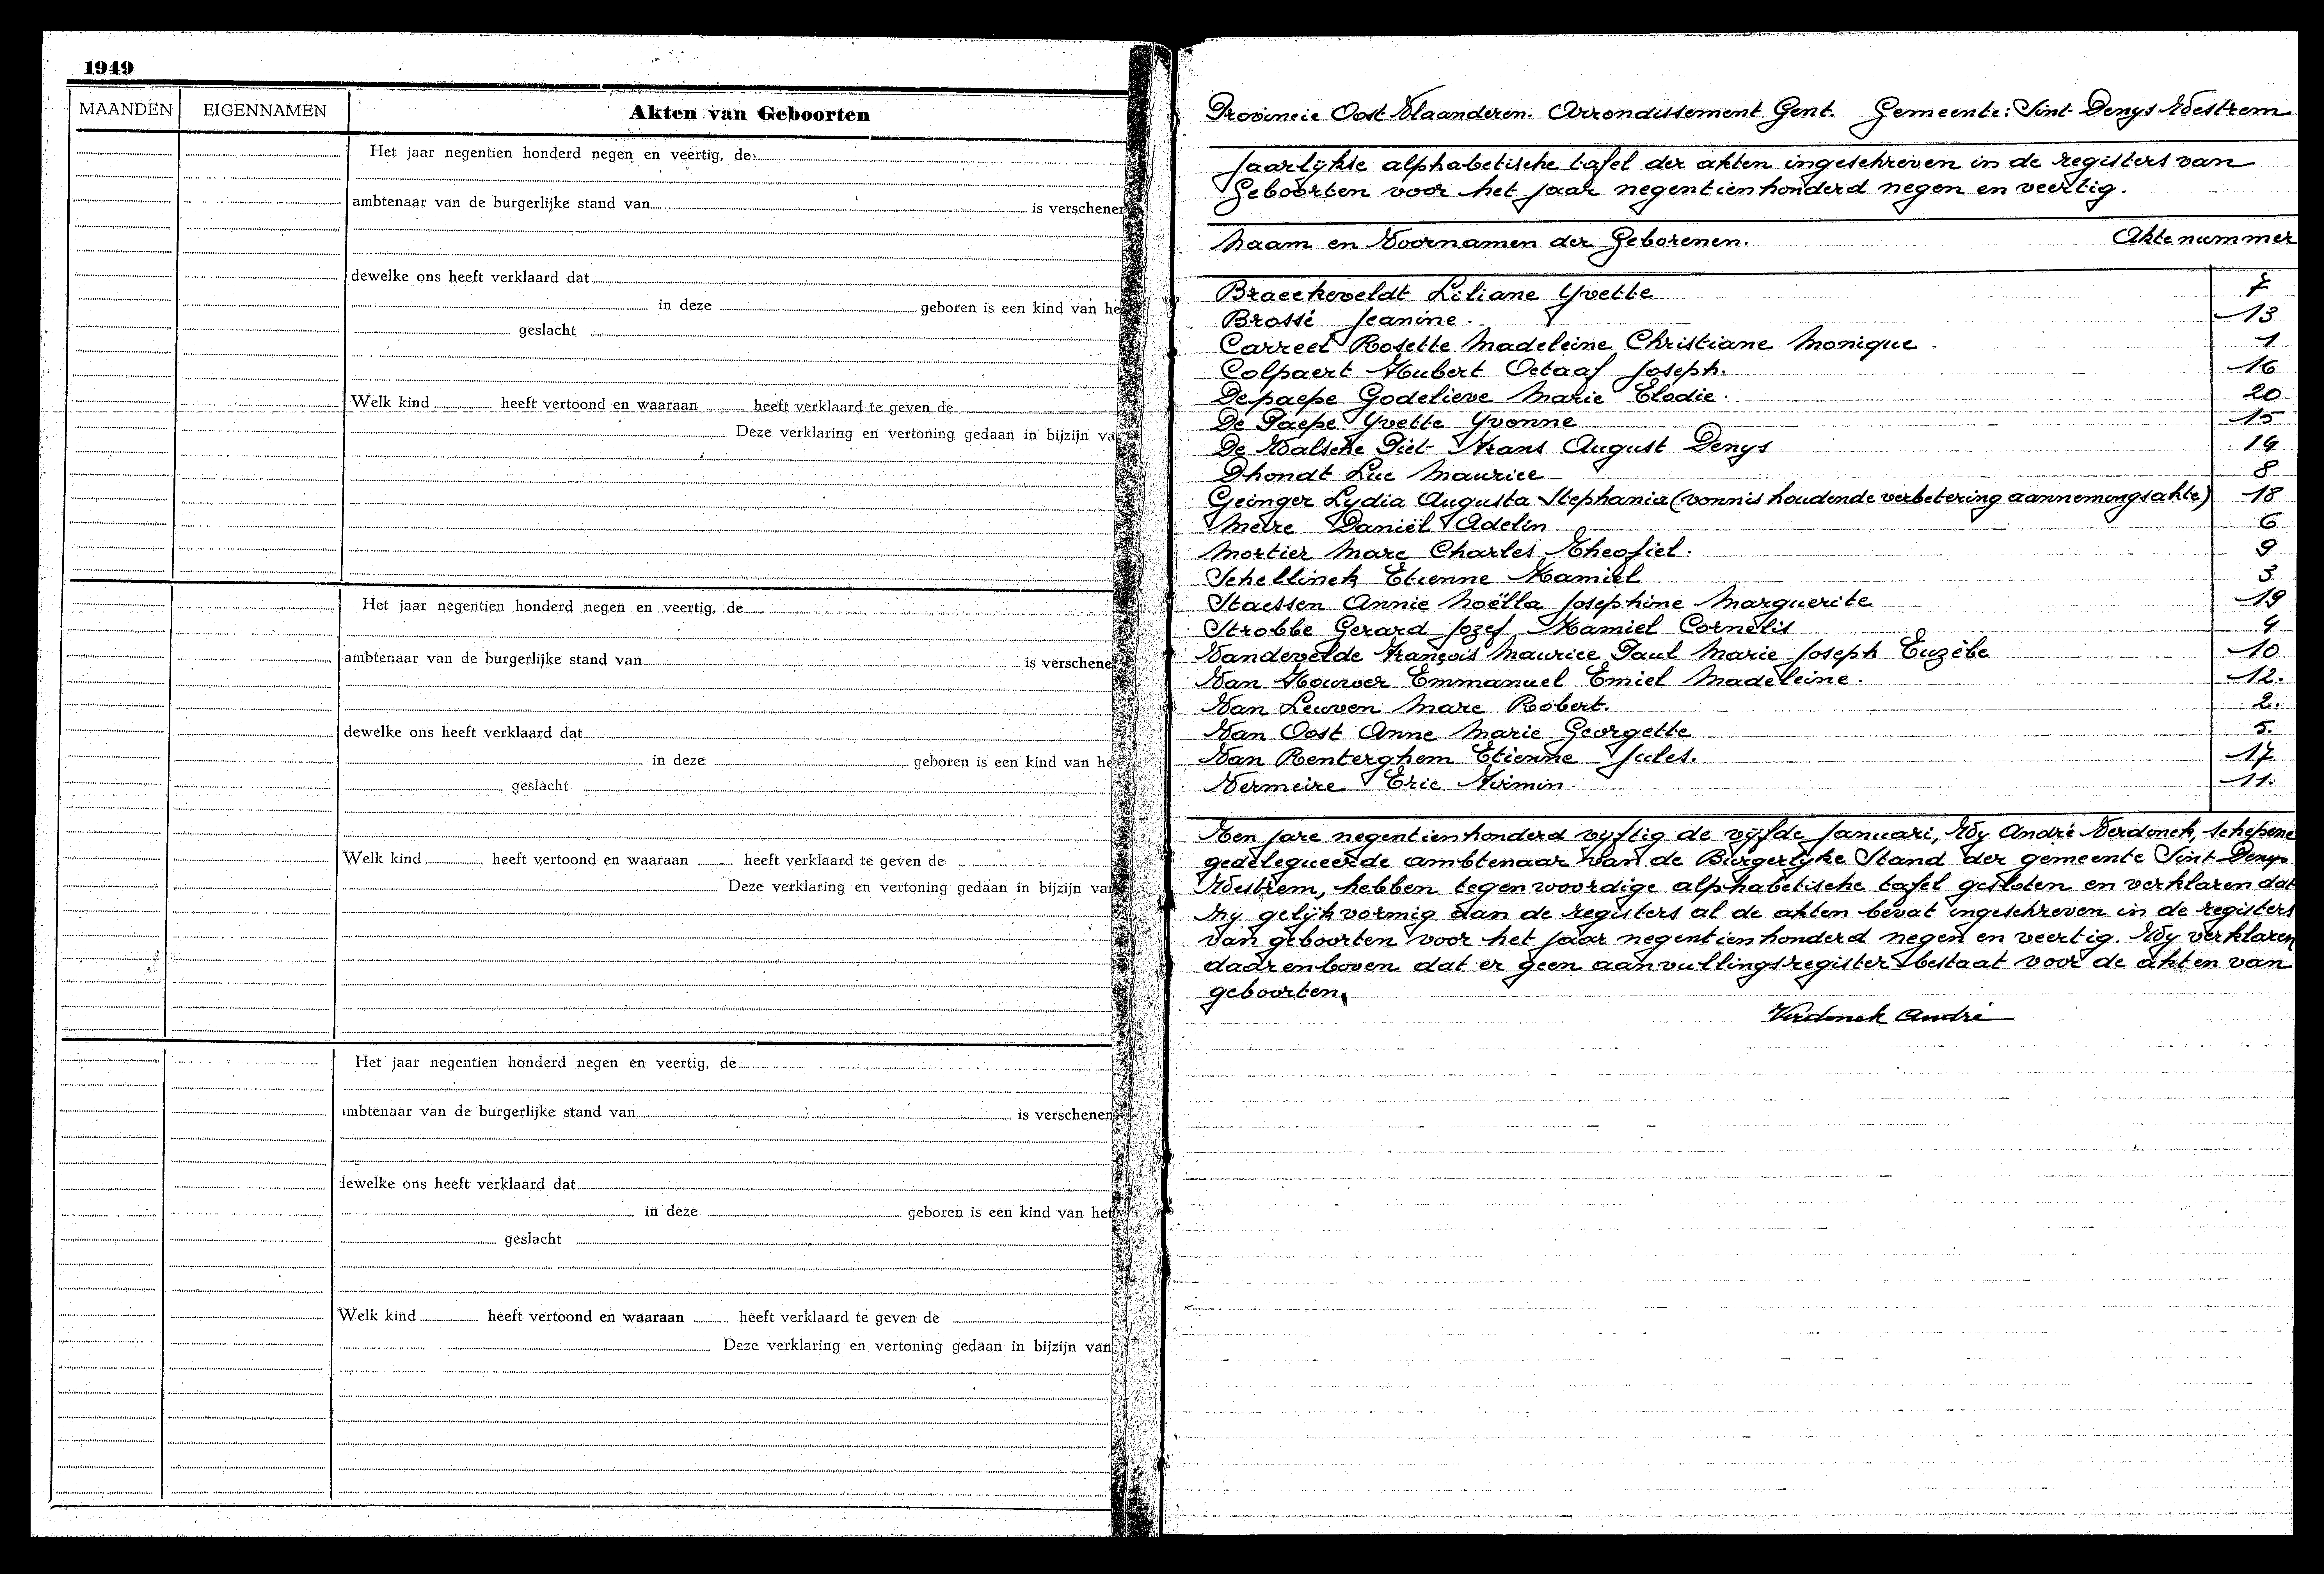 1949
MAANDEN EIGENNAMEN Akten van Geboorten
Het jaar negentien honderd negen en veertig, de
ambtenaar van de burgerlijke stand van is verschenen
dewelke ons heeft verklaard dat
in deze geboren is een kind van he
geslacht
Welk kind heeft vertoond en waaraan heeft verklaard te geven de
Deze verklaring en vertoning gedaan in bijzijn va
Het jaar negentien honderd negen en veertig, de
ambtenaar van de burgerlijke stand van is verschene
dewelke ons heeft verklaard dat
in deze geboren is een kind van he
geslacht
Welk kind heeft vertoond en waaraan heeft verklaard te geven de
Deze verklaring en vertoning gedaan in bijzijn van
Het jaar negentien honderd negen en veertig, de
ambtenaar van de burgerlijke stand van is verschenen
dewelke ons heeft verklaard dat
in deze geboren is een kind van het
geslacht
Welk kind heeft vertoond en waaraan heeft verklaard te geven de
Deze verklaring en vertoning gedaan in bijzijn van
Provincie Oost Vlaanderen. Arrondissement Gent. Gemeente: Sint Denys Westrem
Jaarlijkse alphabetische tafel der akten ingeschreven in de registers van
Geboorten voor het jaar negentienhonderd negen en veertig.
Naam en Voornamen der Geborenen. Aktenummer
Braeckeveldt Liliane Yvette 7
Brossé Jeanine. 13
Carreet Rosette Madeleine Christiane Monique. 1
Colpaert Hubert Octaaf Joseph. 16
Depaepe Godelieve Marie Elodie. 20
De Paepe Yvette Yvonne 15
De Walsche Piet Frans August Denys 14
Dhondt Luc Maurice 8
Geinger Lydia Augusta Stephania (vonnis houdende verbetering aannemingsakte) 18
Meire Daniël Adelin 6
Mortier Marc Charles Theofiel. 9
Schellinck Etienne Kamiel 3
Staessen Annie Noëlla Josephine Marguerite 19
Strobbe Gerard Jozef Kamiel Cornelis 4
Vandevelde François Maurice Paul Marie Joseph Euzèbe 10
Van Houver Emmanuel Emiel Madeleine. 12.
Van Leuven Marc Robert. 2.
Van Oost Anne Marie Georgette 5.
Van Renterghem Etienne Jules. 17
Vermeire Eric Firmin. 11.
Ten jare negentienhonderd vijftig de vijfde Januari, Wy André Verdonck, schepene
gedelegueerde ambtenaar van de Burgerlyke Stand der gemeente Sint Denys
Westrem, hebben tegenwoordige alphabetische tafel gesloten en verklaren dat
zij gelijkvormig aan de registers al de akten bevat ingeschreven in de registers
van geboorten voor het jaar negentienhonderd negen en veertig. Wy verklaren
daarenboven dat er geen aanvullingsregister bestaat voor de akten van
geboorten.
Verdonck André